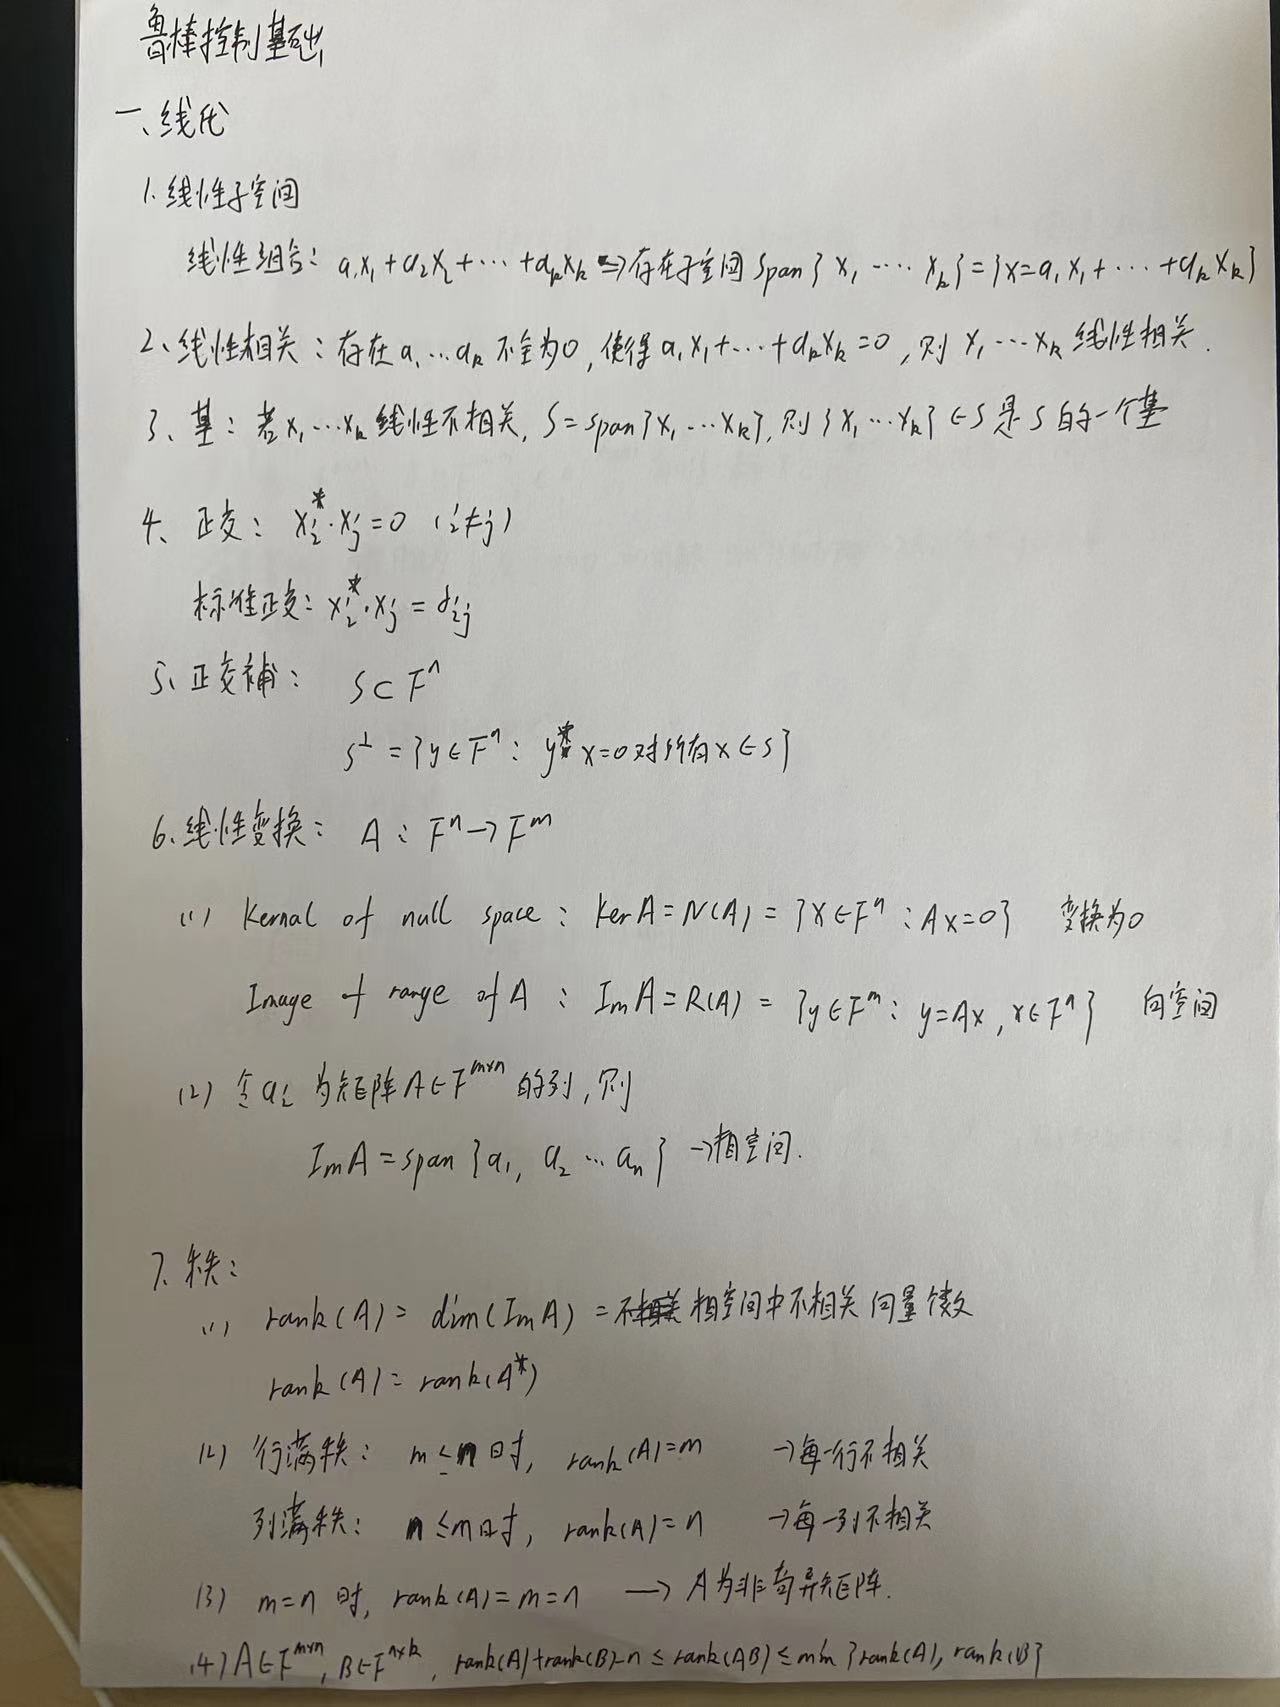 鲁棒控制基础
一、线代
1. 线性子空间
线性组合：a₁x₁+a₂x₂+⋯+aₖxₖ ⇒ 存在子空间 span{x₁ ⋯ xₖ}={x=a₁x₁+⋯+aₖxₖ}
2、线性相关：存在a₁…aₖ不全为0，使得a₁x₁+⋯+aₖxₖ=0，则 x₁⋯xₖ 线性相关.
3、基：若x₁⋯xₖ线性不相关，S=span{x₁⋯xₖ}，则{x₁⋯xₖ}∈S是S的一个基
4、正交：xᵢ*·xⱼ=0 (i≠j)
标准正交：xᵢ*·xⱼ=δᵢⱼ
5、正交補： S⊂Fⁿ
S^⊥={y∈Fⁿ：y*x=0对所有x∈S}
6、线性变换： A：Fⁿ→Fᵐ
(1) Kernal of null space：KerA=N(A)={x∈Fⁿ：Ax=0} 变换为0
Image of range of A：ImA=R(A)={y∈Fᵐ：y=Ax，x∈Fⁿ} 向空间
(2) 令aᵢ为矩阵A∈F^{m×n}的列，则
ImA=span{a₁，a₂⋯aₙ} →相空间.
7、秩：
(1) rank(A)=dim(ImA)=相空间中不相关向量个数
rank(A)=rank(A*)
(2) 行满秩： m≤n时，rank(A)=m →每一行不相关
列满秩： n≤m时，rank(A)=n →每一列不相关
(3) m=n时，rank(A)=m=n → A为非奇异矩阵.
(4) A∈F^{m×n}，B∈F^{n×k}，rank(A)+rank(B)-n≤rank(AB)≤min{rank(A)，rank(B)}